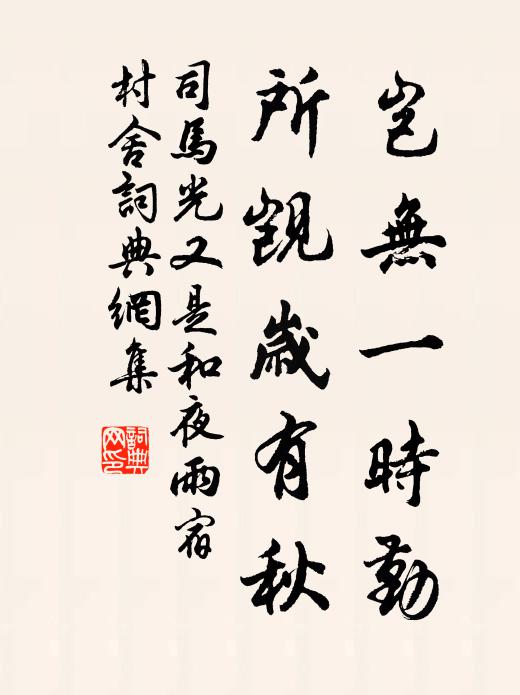 豈無一時勤
所覬歲有秋
司馬光又是和夜雨宿
村舍詞典網集
詞典
网印